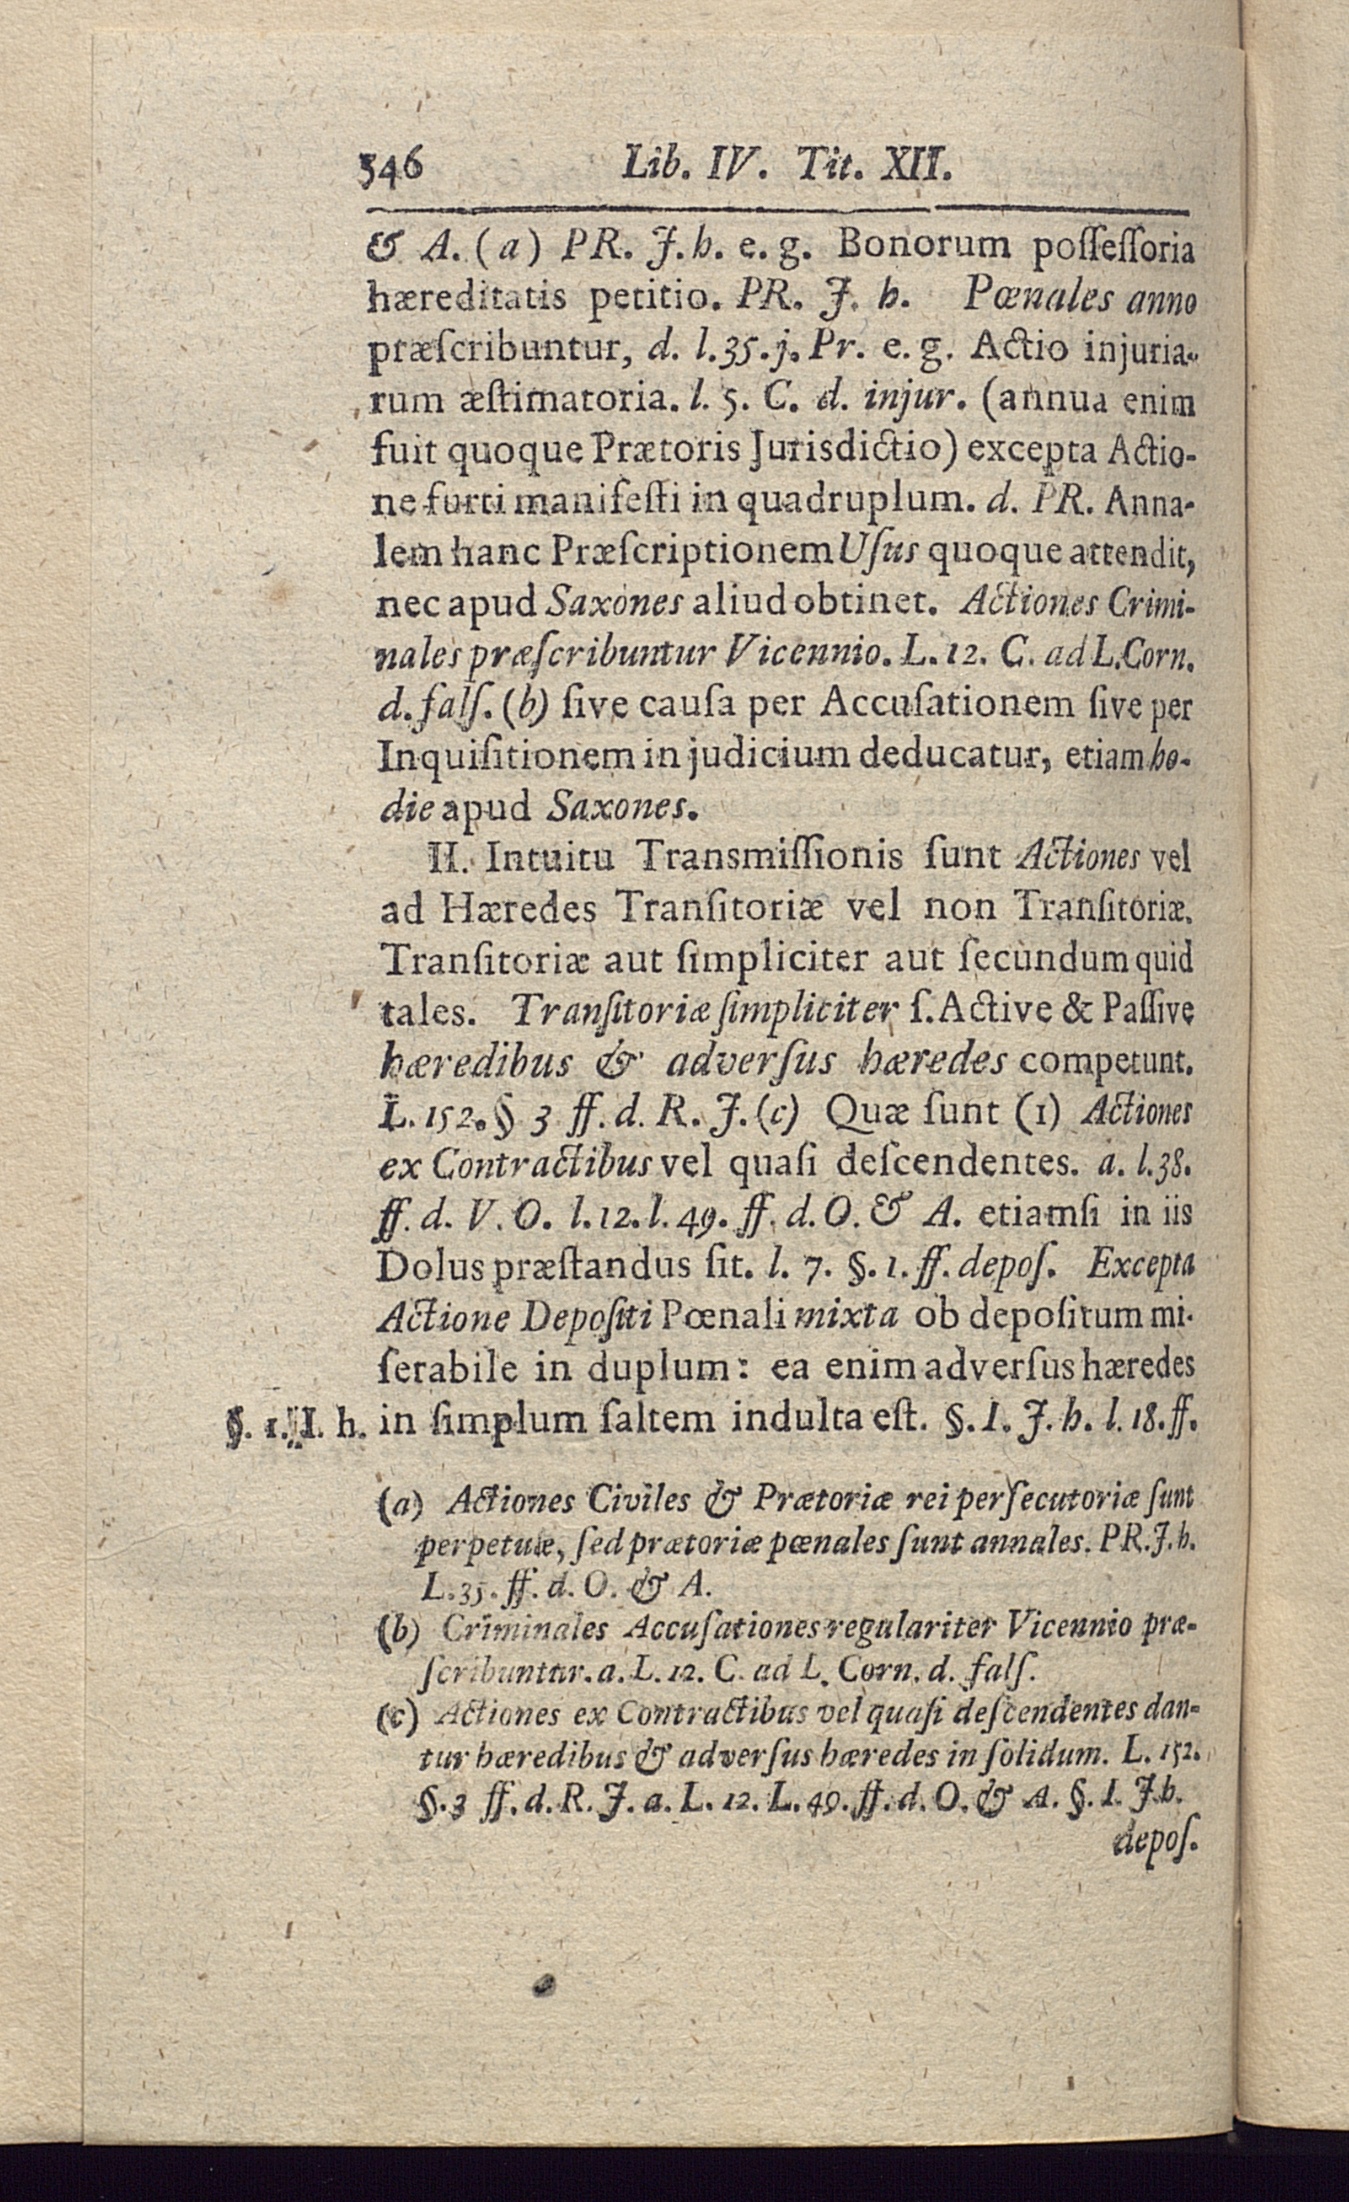 546 Lib. IV. Tit. XII.
& A. (a) PR. J. h. e. g. Bonorum poſſeſſoria
hæreditatis petitio. PR. J. h. Pœnales anno
præſcribuntur, d. l. 35. j. Pr. e. g. Actio injuria-
rum æſtimatoria. l. 5. C. d. injur. (annua enim
fuit quoque Prætoris Jurisdictio) excepta Actio-
ne furti manifeſti in quadruplum. d. PR. Anna-
lem hanc Præſcriptionem Uſus quoque attendit,
nec apud Saxones aliud obtinet. Actiones Crimi-
nales præſcribuntur Vicennio. L. 12. C. ad L. Corn.
d. falſ. (b) ſive cauſa per Accuſationem ſive per
Inquiſitionem in judicium deducatur, etiam ho-
die apud Saxones.
II. Intuitu Transmiſſionis ſunt Actiones vel
ad Hæredes Tranſitoriæ vel non Tranſitoriæ.
Tranſitoriæ aut ſimpliciter aut ſecundum quid
tales. Tranſitoriæ ſimpliciter ſ. Active & Paſſive
hæredibus & adverſus hæredes competunt.
L. 152. § 3 ff. d. R. J. (c) Quæ ſunt (1) Actiones
ex Contractibus vel quaſi deſcendentes. a. l. 38.
ff. d. V. O. l. 12. l. 49. ff. d. O. & A. etiamſi in iis
Dolus præſtandus ſit. l. 7. §. 1. ff. depoſ. Excepta
Actione Depoſiti Pœnali mixta ob depoſitum mi-
ſerabile in duplum: ea enim adverſus hæredes
§. 1. I. h. in ſimplum ſaltem indulta eſt. §. I. J. h. l. 18. ff.
(a) Actiones Civiles & Prætoriæ rei perſecutoriæ ſunt
perpetuæ, ſed prætoriæ pœnales ſunt annales. PR. J. h.
L. 35. ff. d. O. & A.
(b) Criminales Accuſationes regulariter Vicennio præ-
ſcribuntur. a. L. 12. C. ad L. Corn. d. falſ.
(c) Actiones ex Contractibus vel quaſi deſcendentes dan-
tur hæredibus & adverſus hæredes in ſolidum. L. 152.
§. 3 ff. d. R. J. a. L. 12. L. 49. ff. d. O. & A. §. I. J. h.
depoſ.